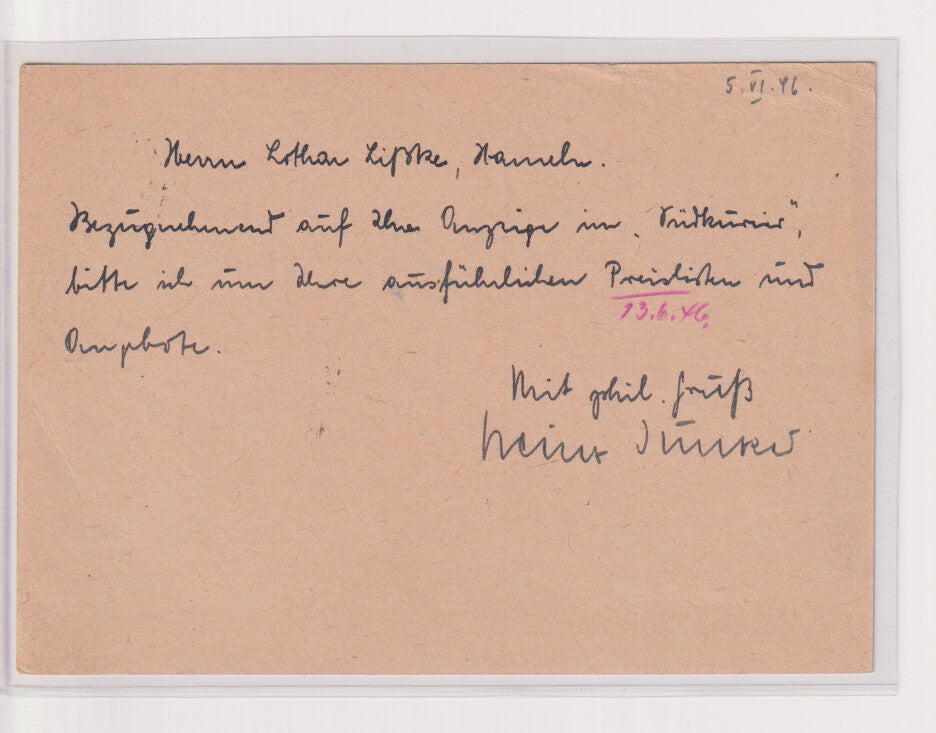 5.VI.46.
Herrn Lothar Lißke, Hameln.
Bezugnehmend auf Ihre Anzeige im „Südkurier",
bitte ich um Ihre ausführlichen Preislisten und
13.6.46.
Angebote.
Mit phil. Gruß
Heinz Dunker